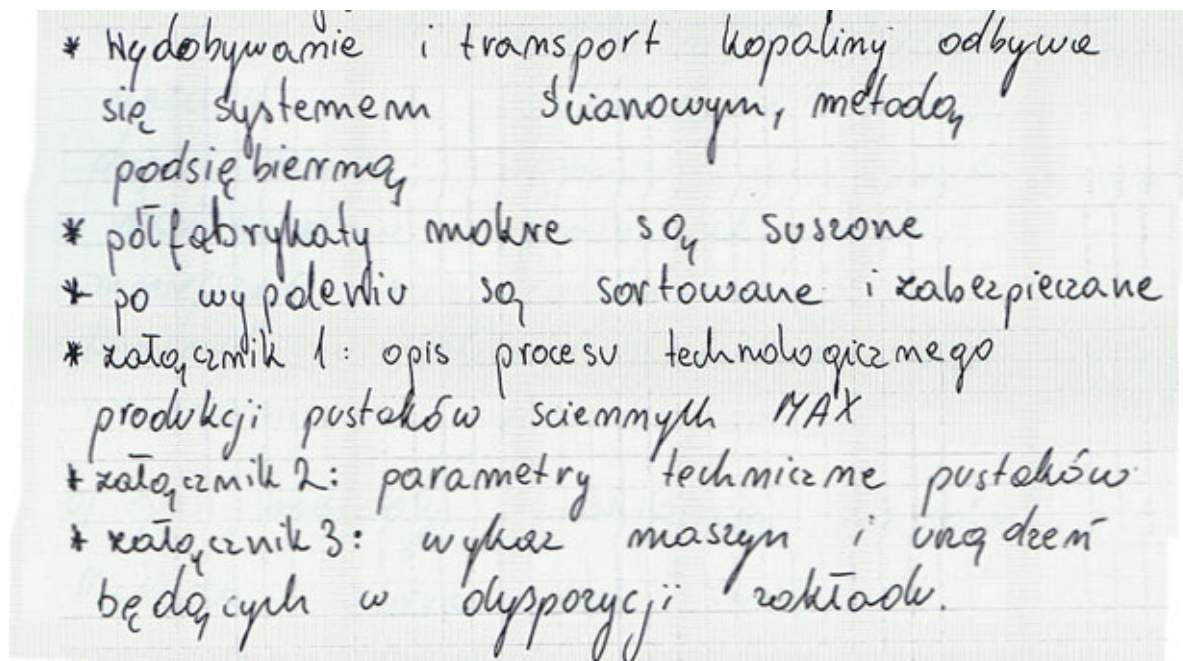 * Wydobywanie i transport kopaliny odbywa
się systemem ścianowym, metodą
podsiębierną
* półfabrykaty mokre są suszone
* po wypaleniu są sortowane i zabezpieczane
* załącznik 1: opis procesu technologicznego
produkcji pustaków sciennych MAX
* załącznik 2: parametry techniczne pustaków
* załącznik 3: wykaz maszyn i urządzeń
będących w dyspozycji zakładu.